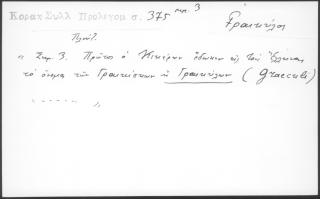 Κοραη Συλλ Προλεγομ σ. 375 σημ. 3
Γραικύλοι
Πλούτ.
" Σημ. 3. Πρῶτος ὁ Κικέρων ἔδωκεν εἰς τοὺς Ἕλληνας
τὸ ὄνομα τῶν Γραικίσκων ἢ Γραικύλων ( Graeculi )